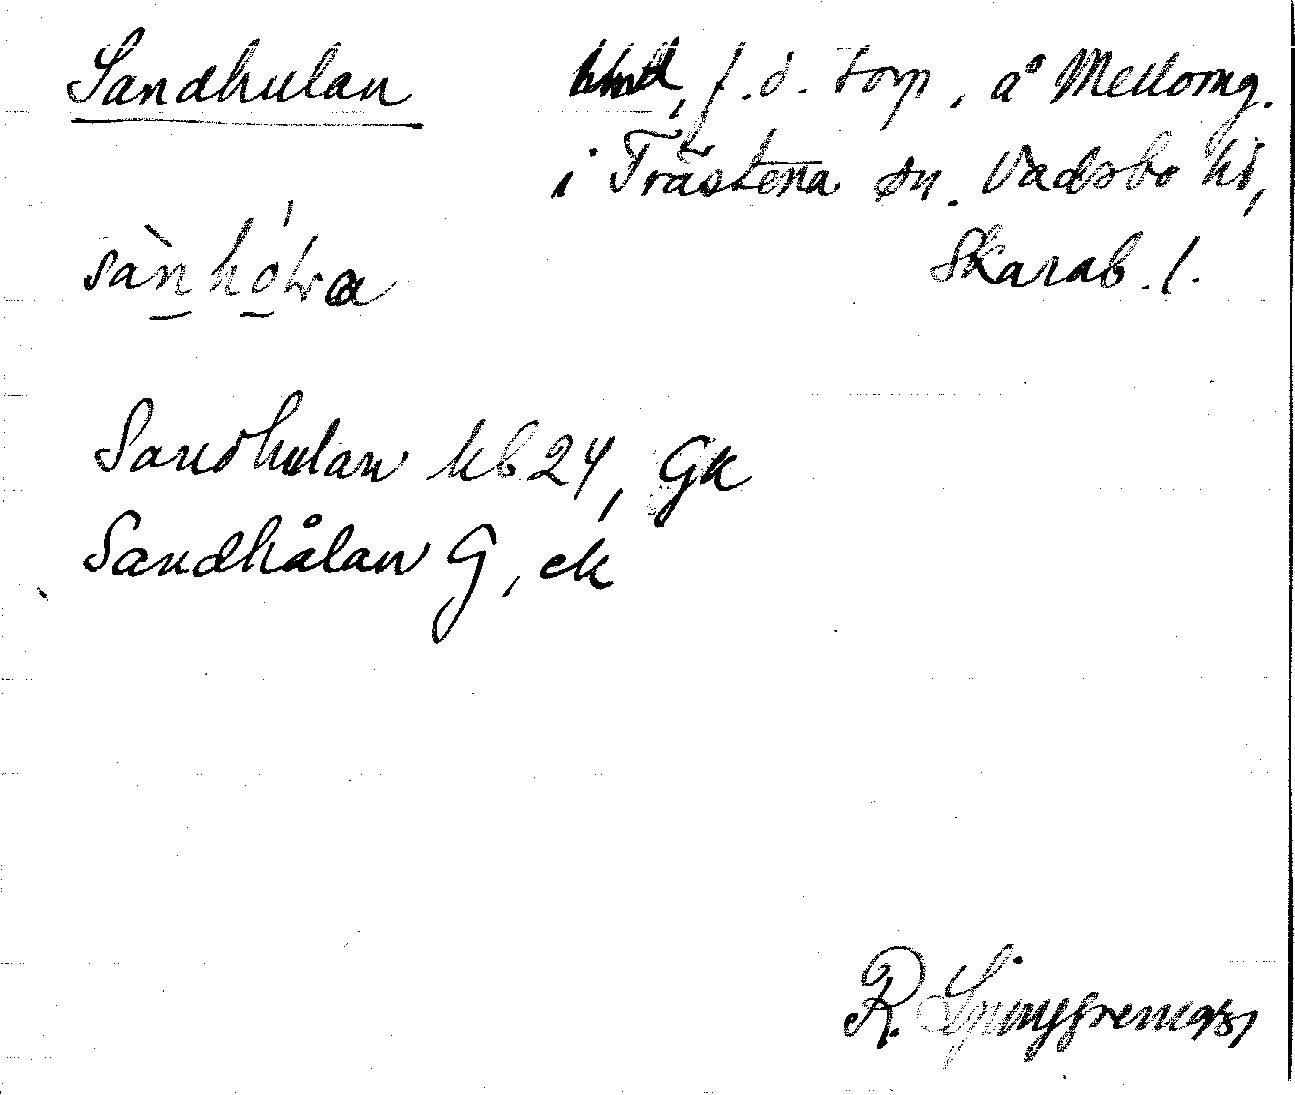 Sandhulan
f.d. torp, å Mellomg.
i Trästena sn. Vadsbo hd,
Skarab. l.
Sandhulan kb 24, Gk
Sandhålan G, ek
R. Ljunggren 1931